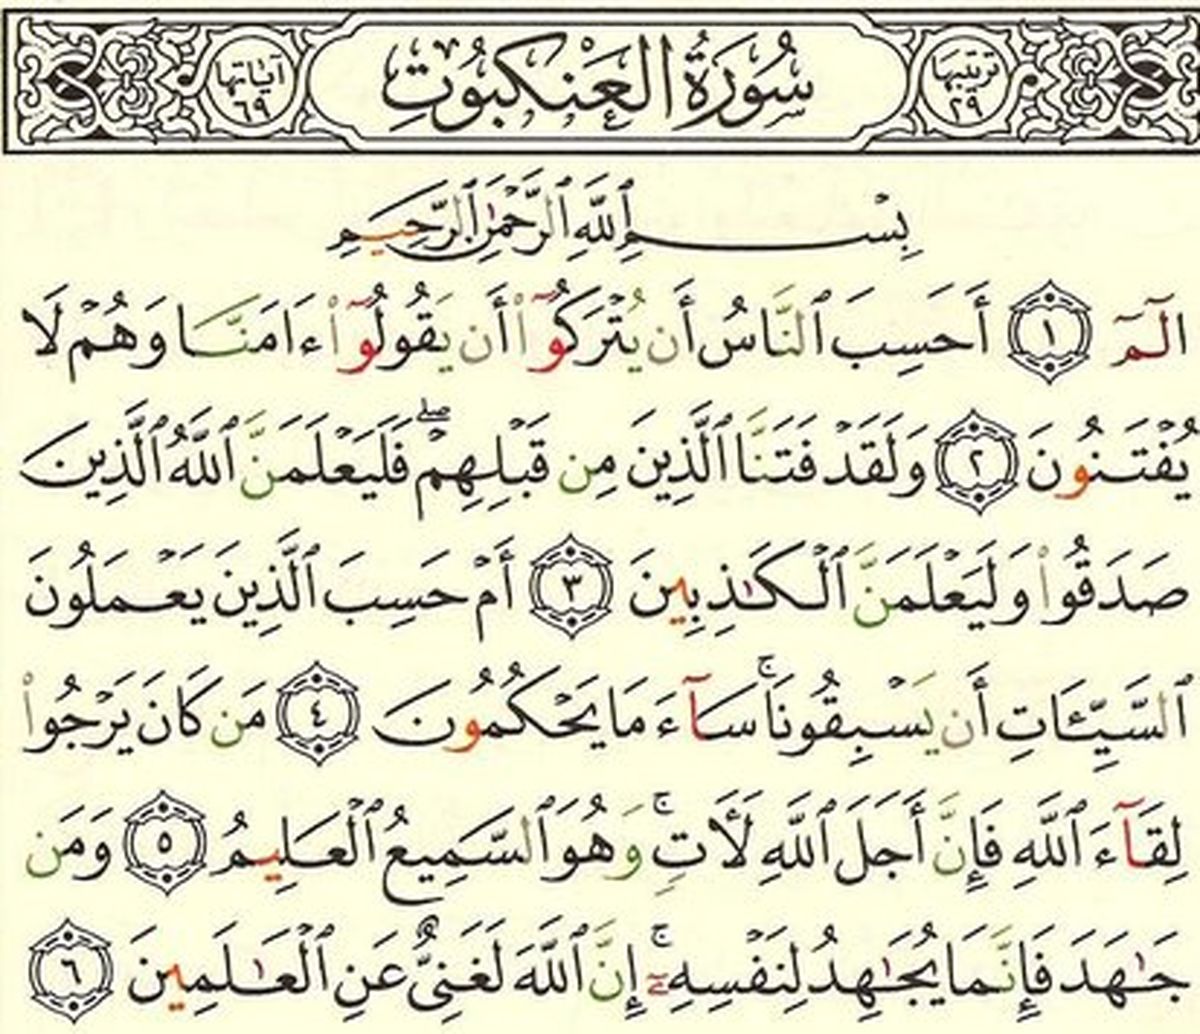 ترتيبها ٢٩ سُورَةُ العَنكبُوتِ آياتها ٦٩
بِسْمِ ٱللَّهِ ٱلرَّحْمَٰنِ ٱلرَّحِيمِ
الٓمٓ ١ أَحَسِبَ ٱلنَّاسُ أَن يُتْرَكُوٓا۟ أَن يَقُولُوٓا۟ ءَامَنَّا وَهُمْ لَا
يُفْتَنُونَ ٢ وَلَقَدْ فَتَنَّا ٱلَّذِينَ مِن قَبْلِهِمْ ۖ فَلَيَعْلَمَنَّ ٱللَّهُ ٱلَّذِينَ
صَدَقُوا۟ وَلَيَعْلَمَنَّ ٱلْكَٰذِبِينَ ٣ أَمْ حَسِبَ ٱلَّذِينَ يَعْمَلُونَ
ٱلسَّيِّـَٔاتِ أَن يَسْبِقُونَا ۚ سَآءَ مَا يَحْكُمُونَ ٤ مَن كَانَ يَرْجُوا۟
لِقَآءَ ٱللَّهِ فَإِنَّ أَجَلَ ٱللَّهِ لَـَٔاتٍ ۚ وَهُوَ ٱلسَّمِيعُ ٱلْعَلِيمُ ٥ وَمَن
جَٰهَدَ فَإِنَّمَا يُجَٰهِدُ لِنَفْسِهِۦٓ ۚ إِنَّ ٱللَّهَ لَغَنِىٌّ عَنِ ٱلْعَٰلَمِينَ ٦